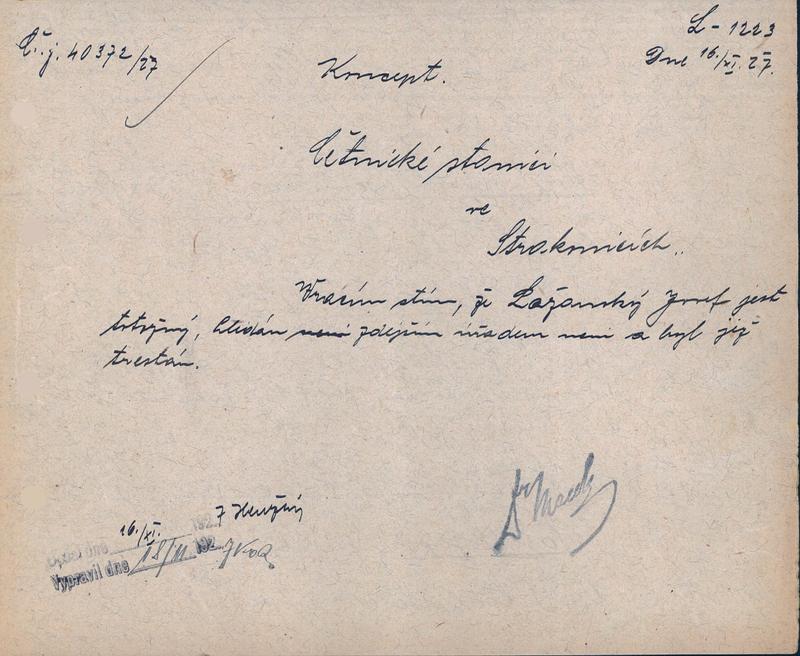 Č.j. 40372/27
L - 1223
Dne 16./XI. 27.
Koncept.
Četnické stanici
ve
Strakonicích.
Vracím stím, že Lažanský Josef jest
totožný, hledán není zdejším úřadem není a byl již
trestán.
16./XI. 192 7
Opsal dne
Vypravil dne 18/11 192 7
Dr